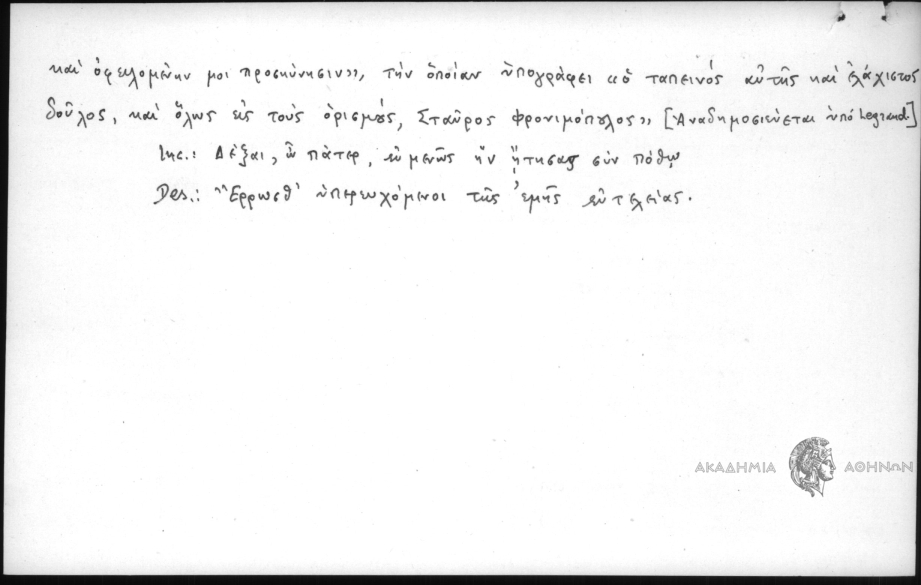 καὶ ὀφειλομένην μοι προσκύνησιν», τὴν ὁποίαν ὑπογράφει «ὁ ταπεινός αὐτῆς καὶ ἐλάχιστος
δοῦλος, καὶ ὅλως εἰς τοὺς ὁρισμούς, Σταῦρος Φρονιμόπουλος» [Ἀναδημοσιεύεται ὑπό Legrand]
Inc.: Δέξαι, ὦ πάτερ, εὐμενῶς ἥν ᾔτησας σύν πόθῳ
Des.: Ἔρρωσθ' ὑπερευχόμενοι τῆς ἐμῆς εὐτελείας.
ΑΚΑΔΗΜΙΑ ΑΘΗΝΩΝ